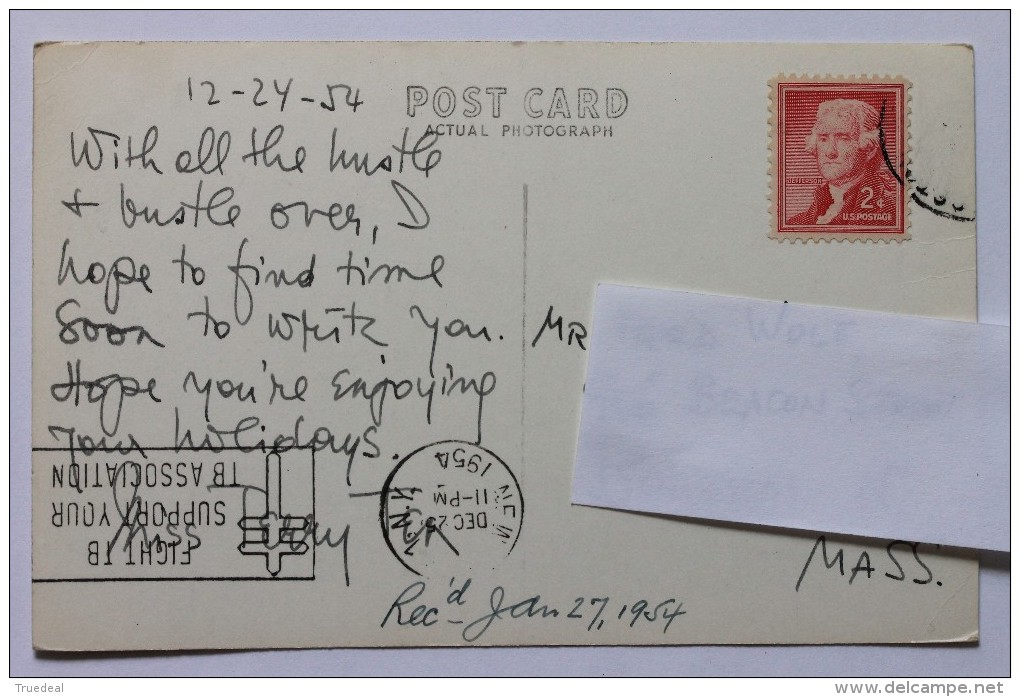 12-24-54
POST CARD
ACTUAL PHOTOGRAPH
With all the hustle
& bustle over, I
hope to find time
soon to write you.
Hope you're enjoying
your holidays.
Miss
JEFFERSON
2¢
U.S. POSTAGE
MR
BEACON
MASS.
FIGHT TB
SUPPORT YOUR
TB ASSOCIATION
NEW
DEC 25
11-PM
1954
Rec'd Jan 27, 1954
Truedeal
delcampe.net